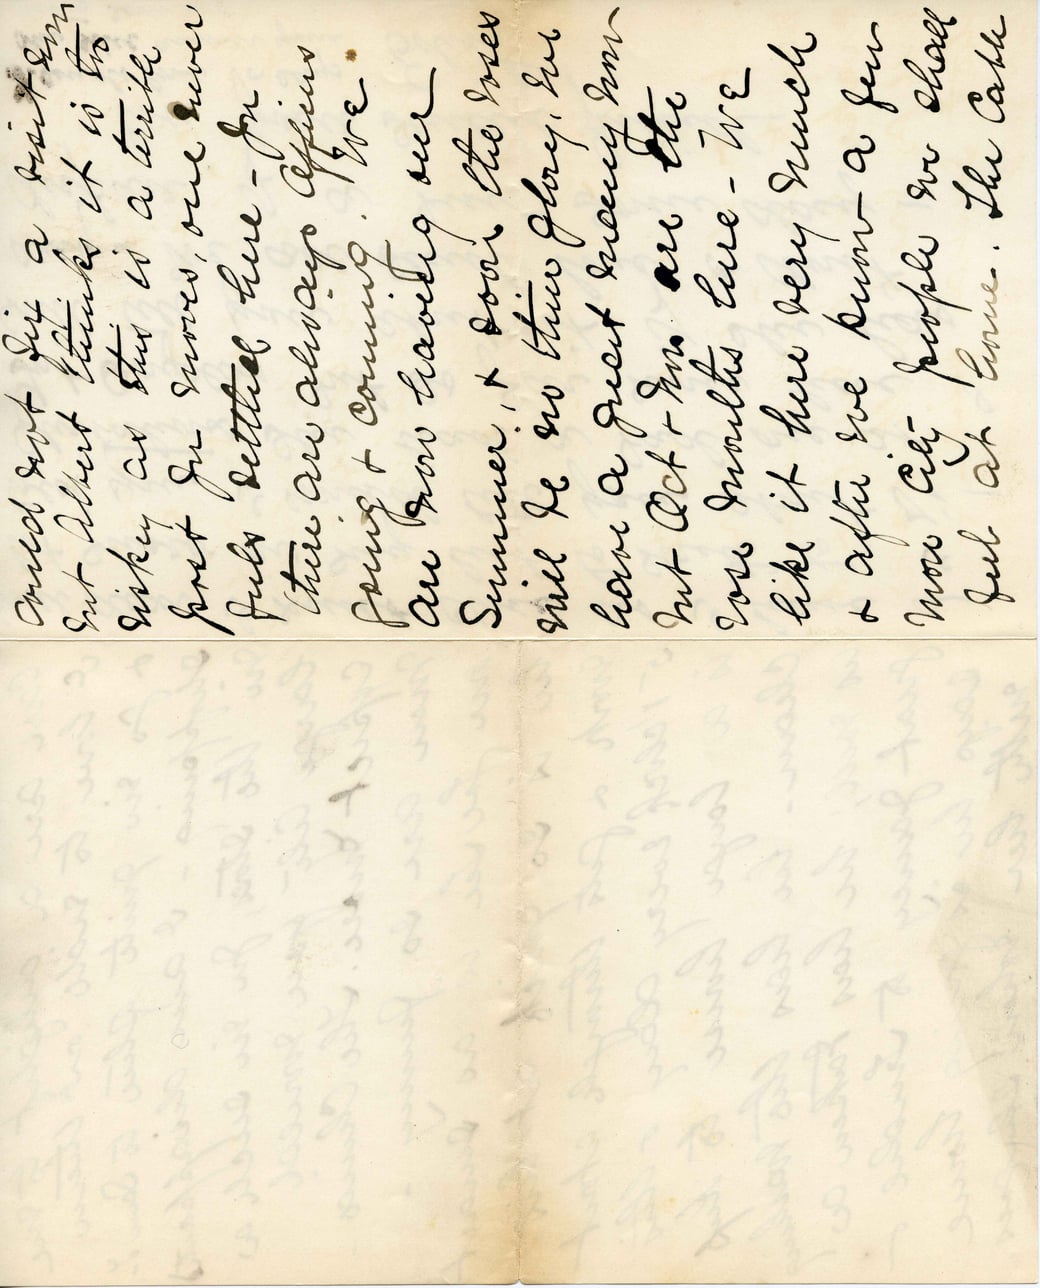 could not fix a visit now
but Albert thinks it is too
risky as this is a terrible
post for moves, one never
feels settled here - for
there are always officers
going & coming. We
are now having our
Summer, & soon the roses
will be in their glory. We
have a great many now
but Oct & Nov are the
rose months here - We
like it here very much
& after we know a few
more City people we shall
feel at home. The Cable